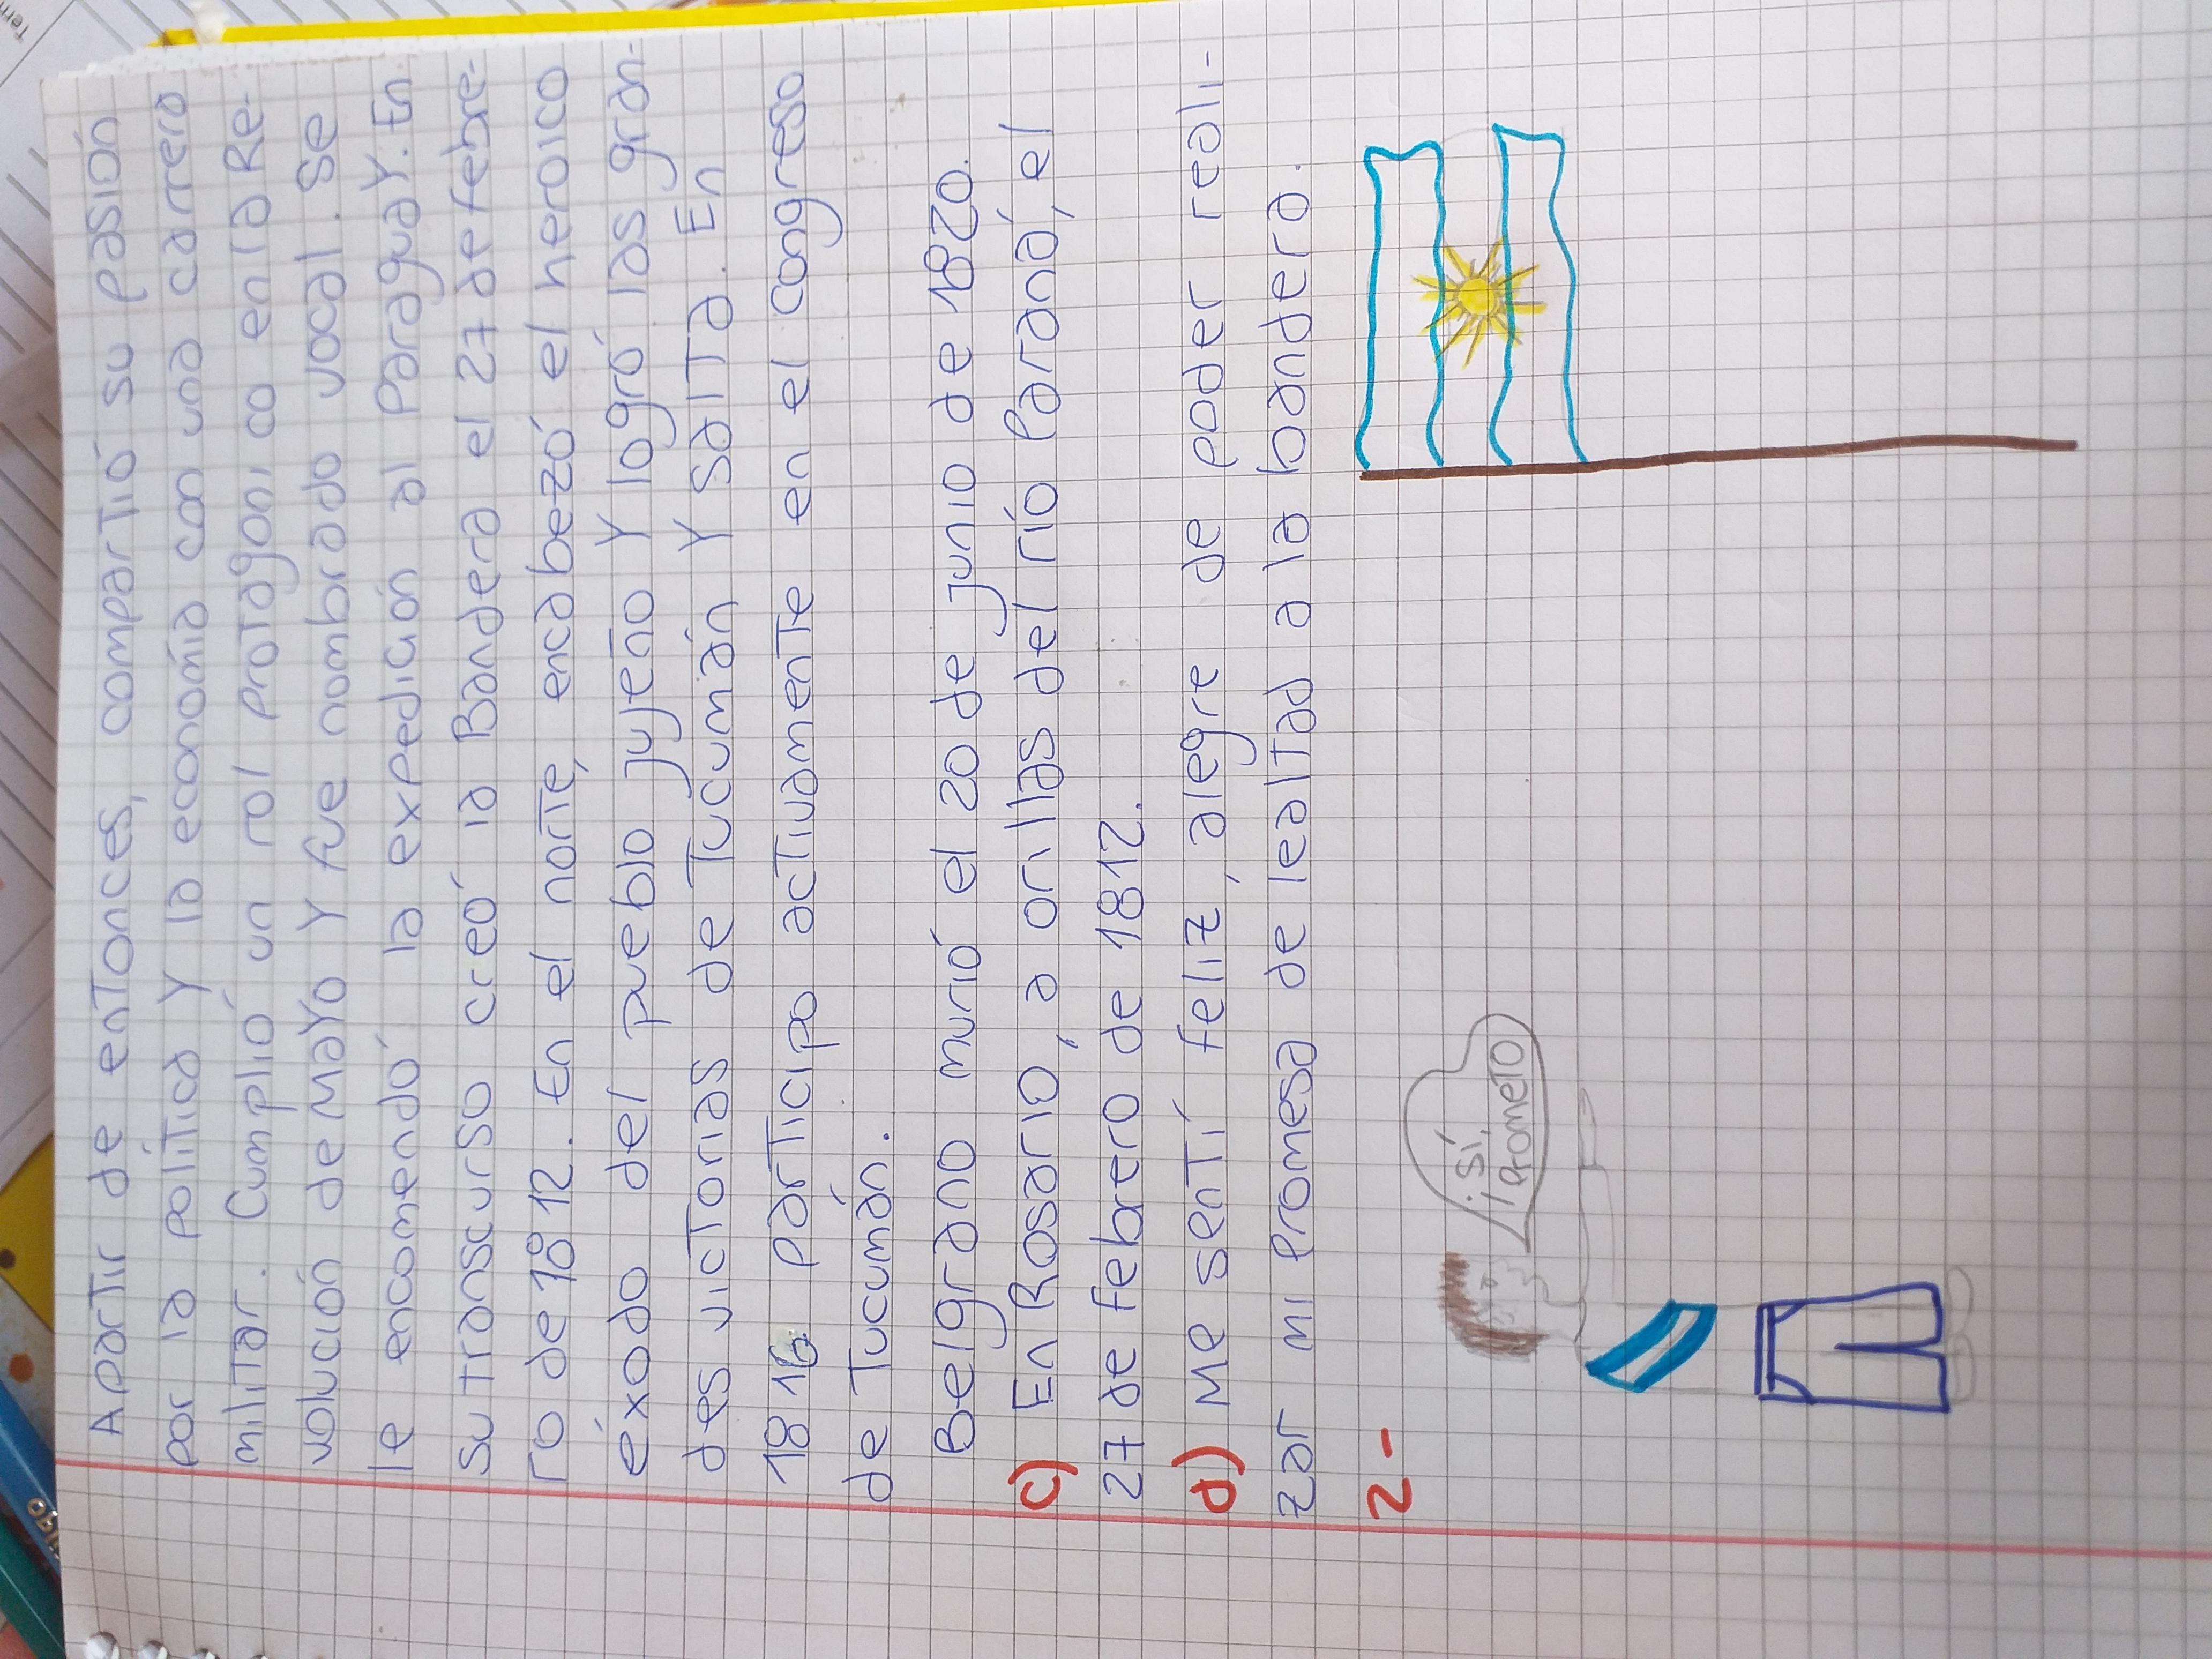 Apartir de entonces, compartió su pasión
por la política y la economía con una carrera
militar. Cumplió un rol protagonico en la Re-
volución de Mayo y fue nombrado vocal. Se
le encomendó la expedición al Paraguay. En
su transcurso creó la Bandera el 27 de febre-
ro de 1812. En el norte, encabezó el heroico
éxodo del pueblo jujeño y logró las gran-
des victorias de Tucumán y Salta. En
1816 participo activamente en el congreso
de Tucumán.
Belgrano murió el 20 de junio de 1820.
c) En Rosario, a orillas del río Paraná, el
27 de febrero de 1812.
d) Me sentí feliz, alegre de poder reali-
zar mi Promesa de lealtad a la bandera.
2-
¡Sí,
Prometo